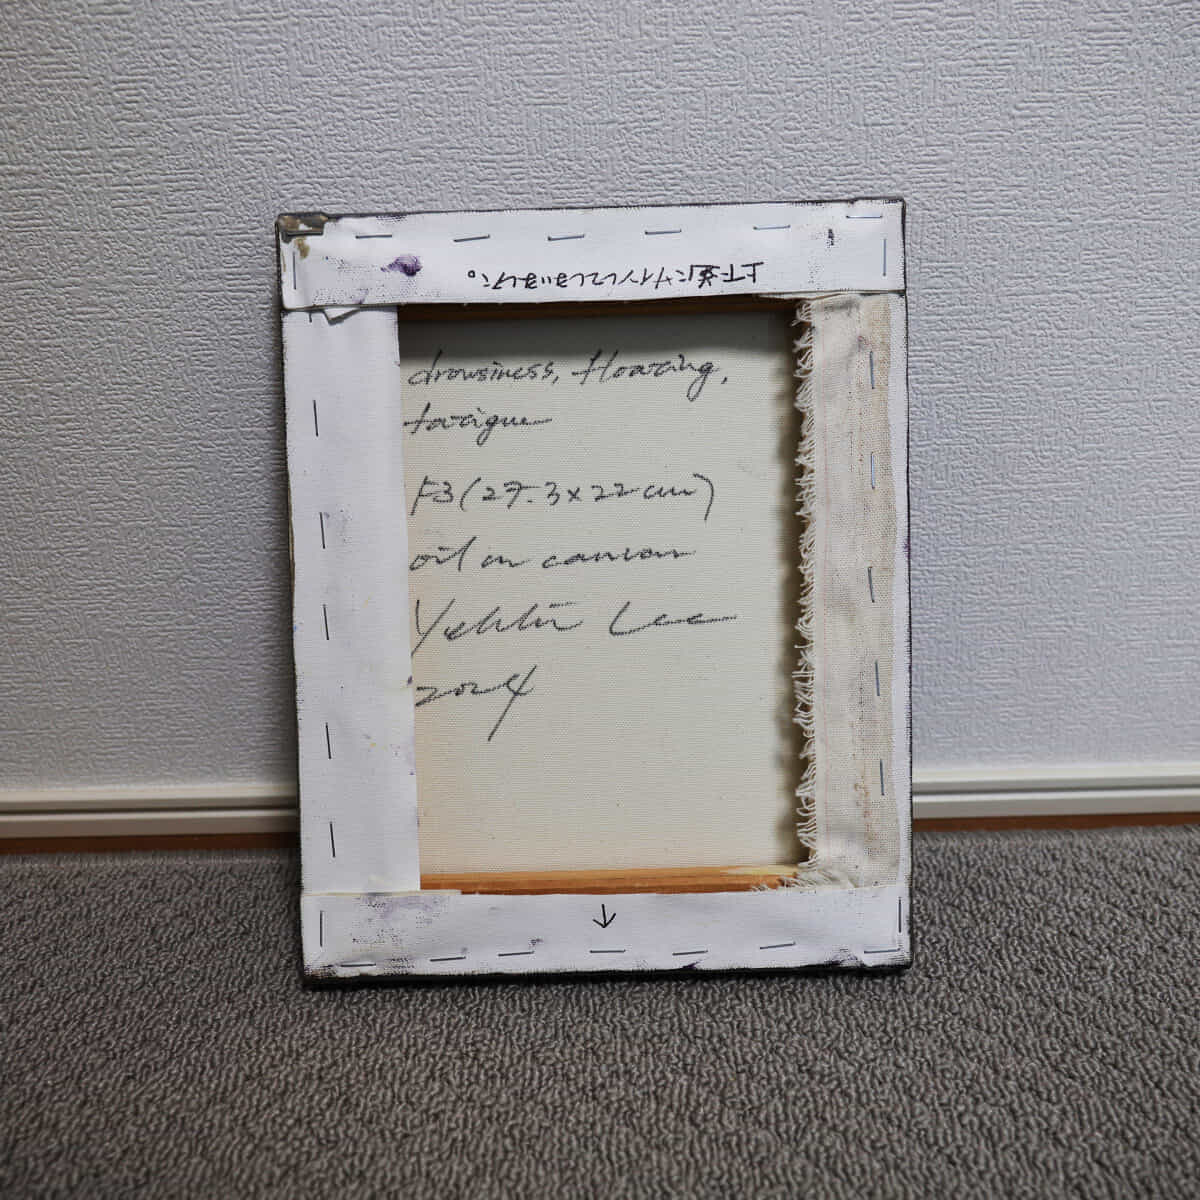 上下逆にサインしてしまいました。
drowsiness, floating,
fatigue
F3 (27.3×22cm)
oil on canvas
Lee
2024
↓